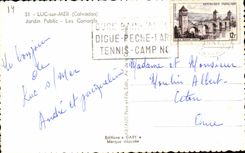 14
31 - LUC-sur-MER (Calvados)
Jardin Public - Les Canards
DIGUE-PECHE-
TENNIS-CAMPING
12F
Un bonjour
de
Luc s/mer
André et Jacqueline
Madame et Monsieur
Moulin Albert
Ceton
Orne
Editions "GABY"
Marque déposée